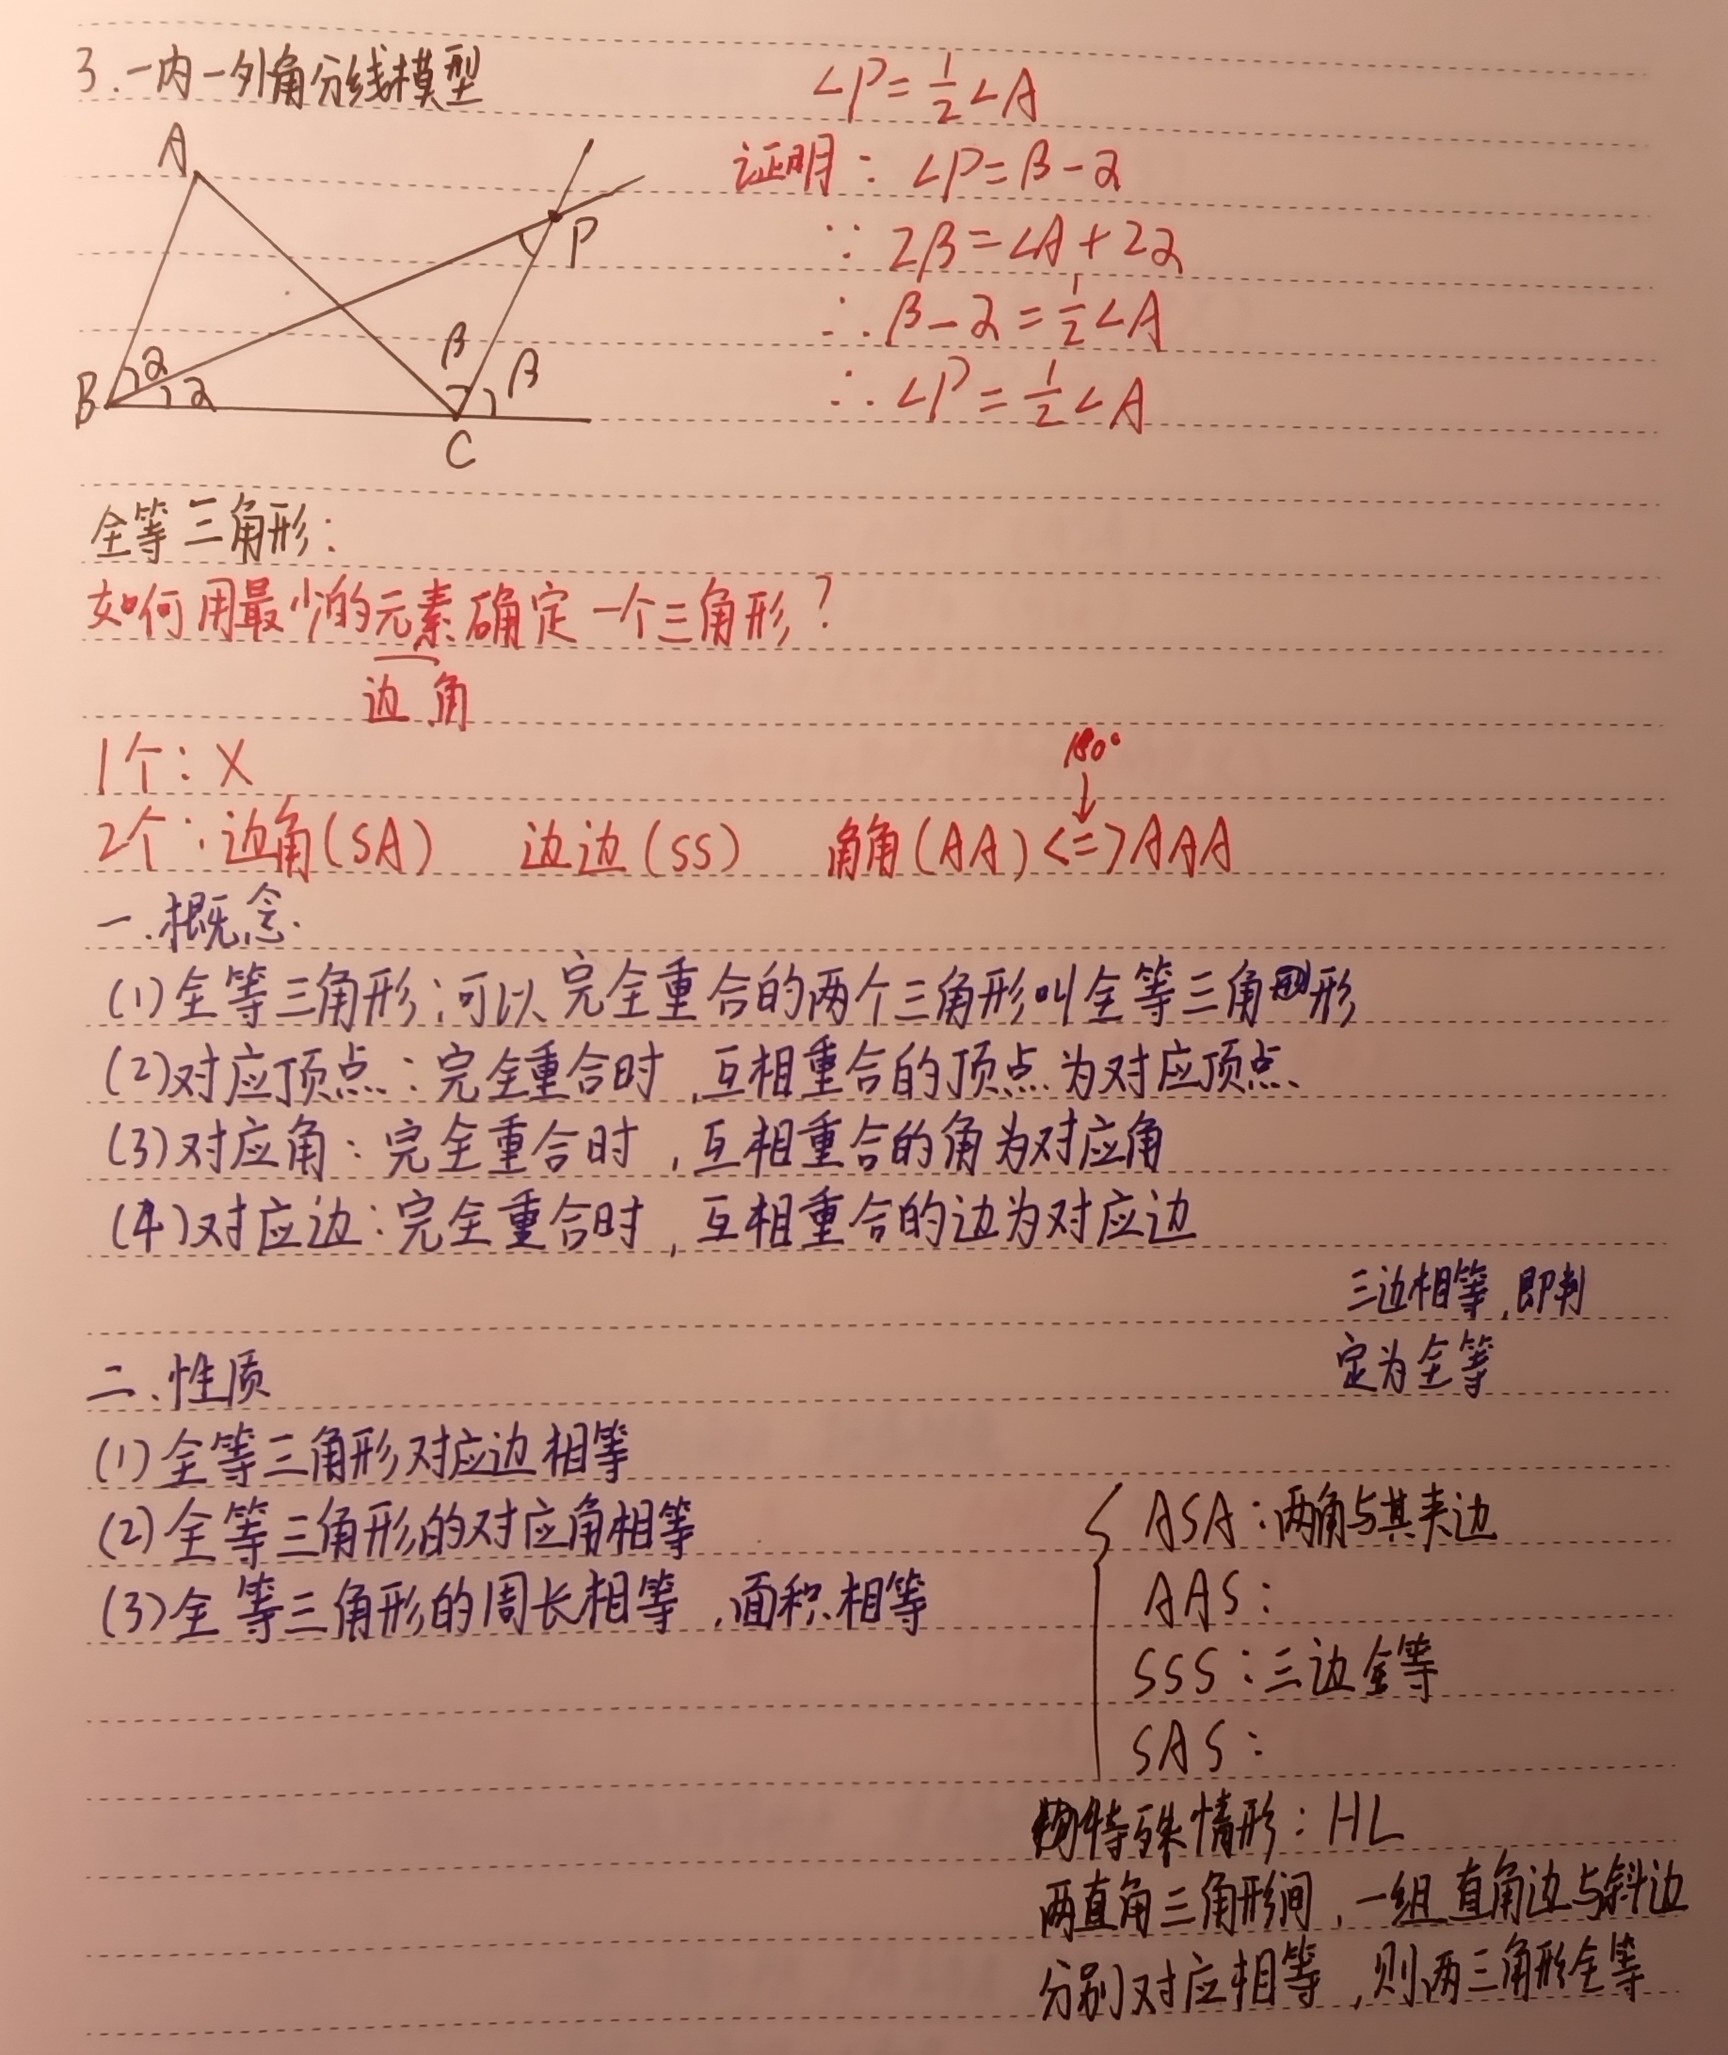 3.一内一外角分线模型
∠P=1/2∠A
证明：∠P=β-α
∵ 2β=∠A+2α
∴ β-α=1/2∠A
∴ ∠P=1/2∠A
A
P
B
α
α
β
β
C
全等三角形：
如何用最少的元素确定一个三角形？
边 角
1个：X
180°
↓
2个：边角(SA) 边边(SS) 角角(AA)<=>AAA
一.概念.
(1)全等三角形：可以完全重合的两个三角形叫全等三角形
(2)对应顶点：完全重合时，互相重合的顶点为对应顶点、
(3)对应角：完全重合时，互相重合的角为对应角
(4)对应边：完全重合时，互相重合的边为对应边
三边相等，即判
定为全等
二、性质
(1)全等三角形对应边相等
(2)全等三角形的对应角相等
(3)全等三角形的周长相等，面积相等
ASA：两角与其夹边
AAS：
SSS：三边全等
SAS：
特殊情形：HL
两直角三角形间，一组直角边与斜边
分别对应相等，则两三角形全等